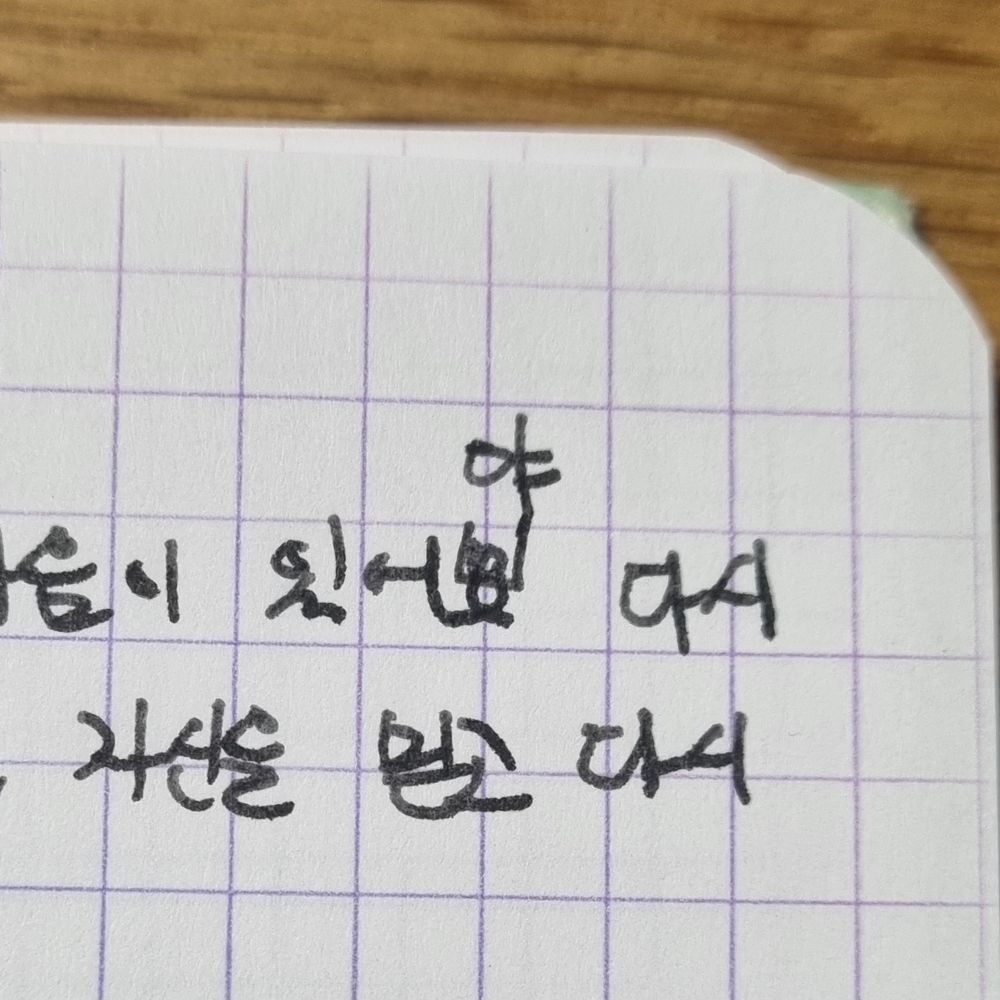 들이 있어야 다시
, 자신을 믿고 다시